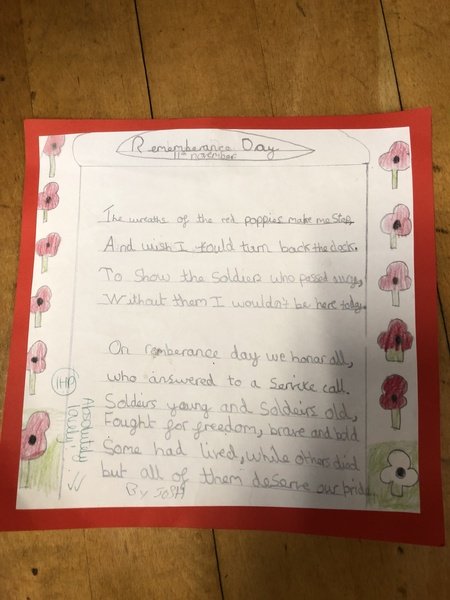 Rememberance Day
11th november
The wreaths of the red poppies make me stop,
And wish I could turn back the clock.
To show the Soldiers who passed away,
Without them I wouldn't be here today.
On remberance day we honor all,
who answered to a service call.
Soldeirs young and Soldeirs old,
Fought for freedom, brave and bold
Some had lived, while others died
but all of them deserve our pride.
By JOSH